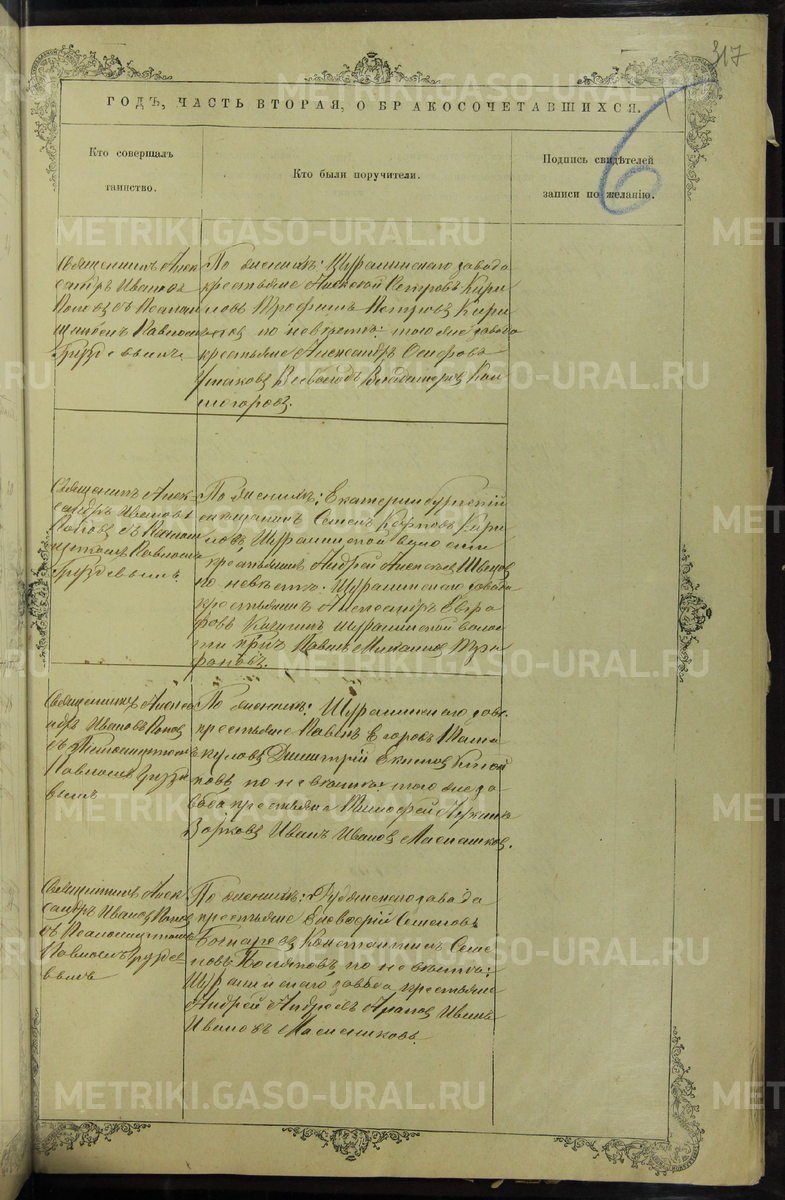 317
ГОДЪ, ЧАСТЬ ВТОРАЯ, О БРАКОСОЧЕТАВШИХСЯ.
6
Кто совершалъ
таинство.
Кто были поручители.
Подпись свидѣтелей
записи по желанію.
Священникъ Алек
сандръ Ивановъ
Поповъ съ Псалом
щикомъ Павломъ
Груздевымъ
По женихѣ: Шуралинскаго завода
крестьяне Алексей Петровъ Кири
ловъ Трофимъ Петровъ Кири
ловъ по невѣстѣ: того же завода
крестьяне Александръ
Ушаковъ Всеволодъ Владимировъ Кол
могоровъ.
Священникъ Алек
сандръ Ивановъ
Поповъ съ Псалом
щикомъ Павломъ
Груздевымъ
По женихѣ: Екатеринбургскій
мѣщанинъ Семенъ Карповъ Кири
ловъ, Шуралинской волости
крестьянинъ Андрей
по невѣстѣ: Шуралинскаго завода
крестьянинъ Александръ Евгра
фовъ Шуралинской волос
ти кр. Павелъ Михаиловъ
Священникъ Алекса
ндръ Ивановъ Поповъ
съ Псаломщикомъ
Павломъ Грузде
вымъ
По женихѣ: Шуралинскаго заво
крестьяне Павелъ Егоровъ Шама
куловъ Димитрій
по невѣстѣ: того же за
вода крестьяне Тимофей
Иванъ Ивановъ Масленниковъ.
Священникъ Алек
сандръ Ивановъ Поповъ
съ Псаломщикомъ
Павломъ Грузде
вымъ
По женихѣ: завода
крестьяне Елевферій Семеновъ
Бочкаревъ, Константинъ Семе
новъ Поляковъ, по невѣстѣ:
Шуралинскаго завода крестьяне
Андрей Андреевъ Иванъ
Ивановъ Масленниковъ
METRIKI.GASO-URAL.RU